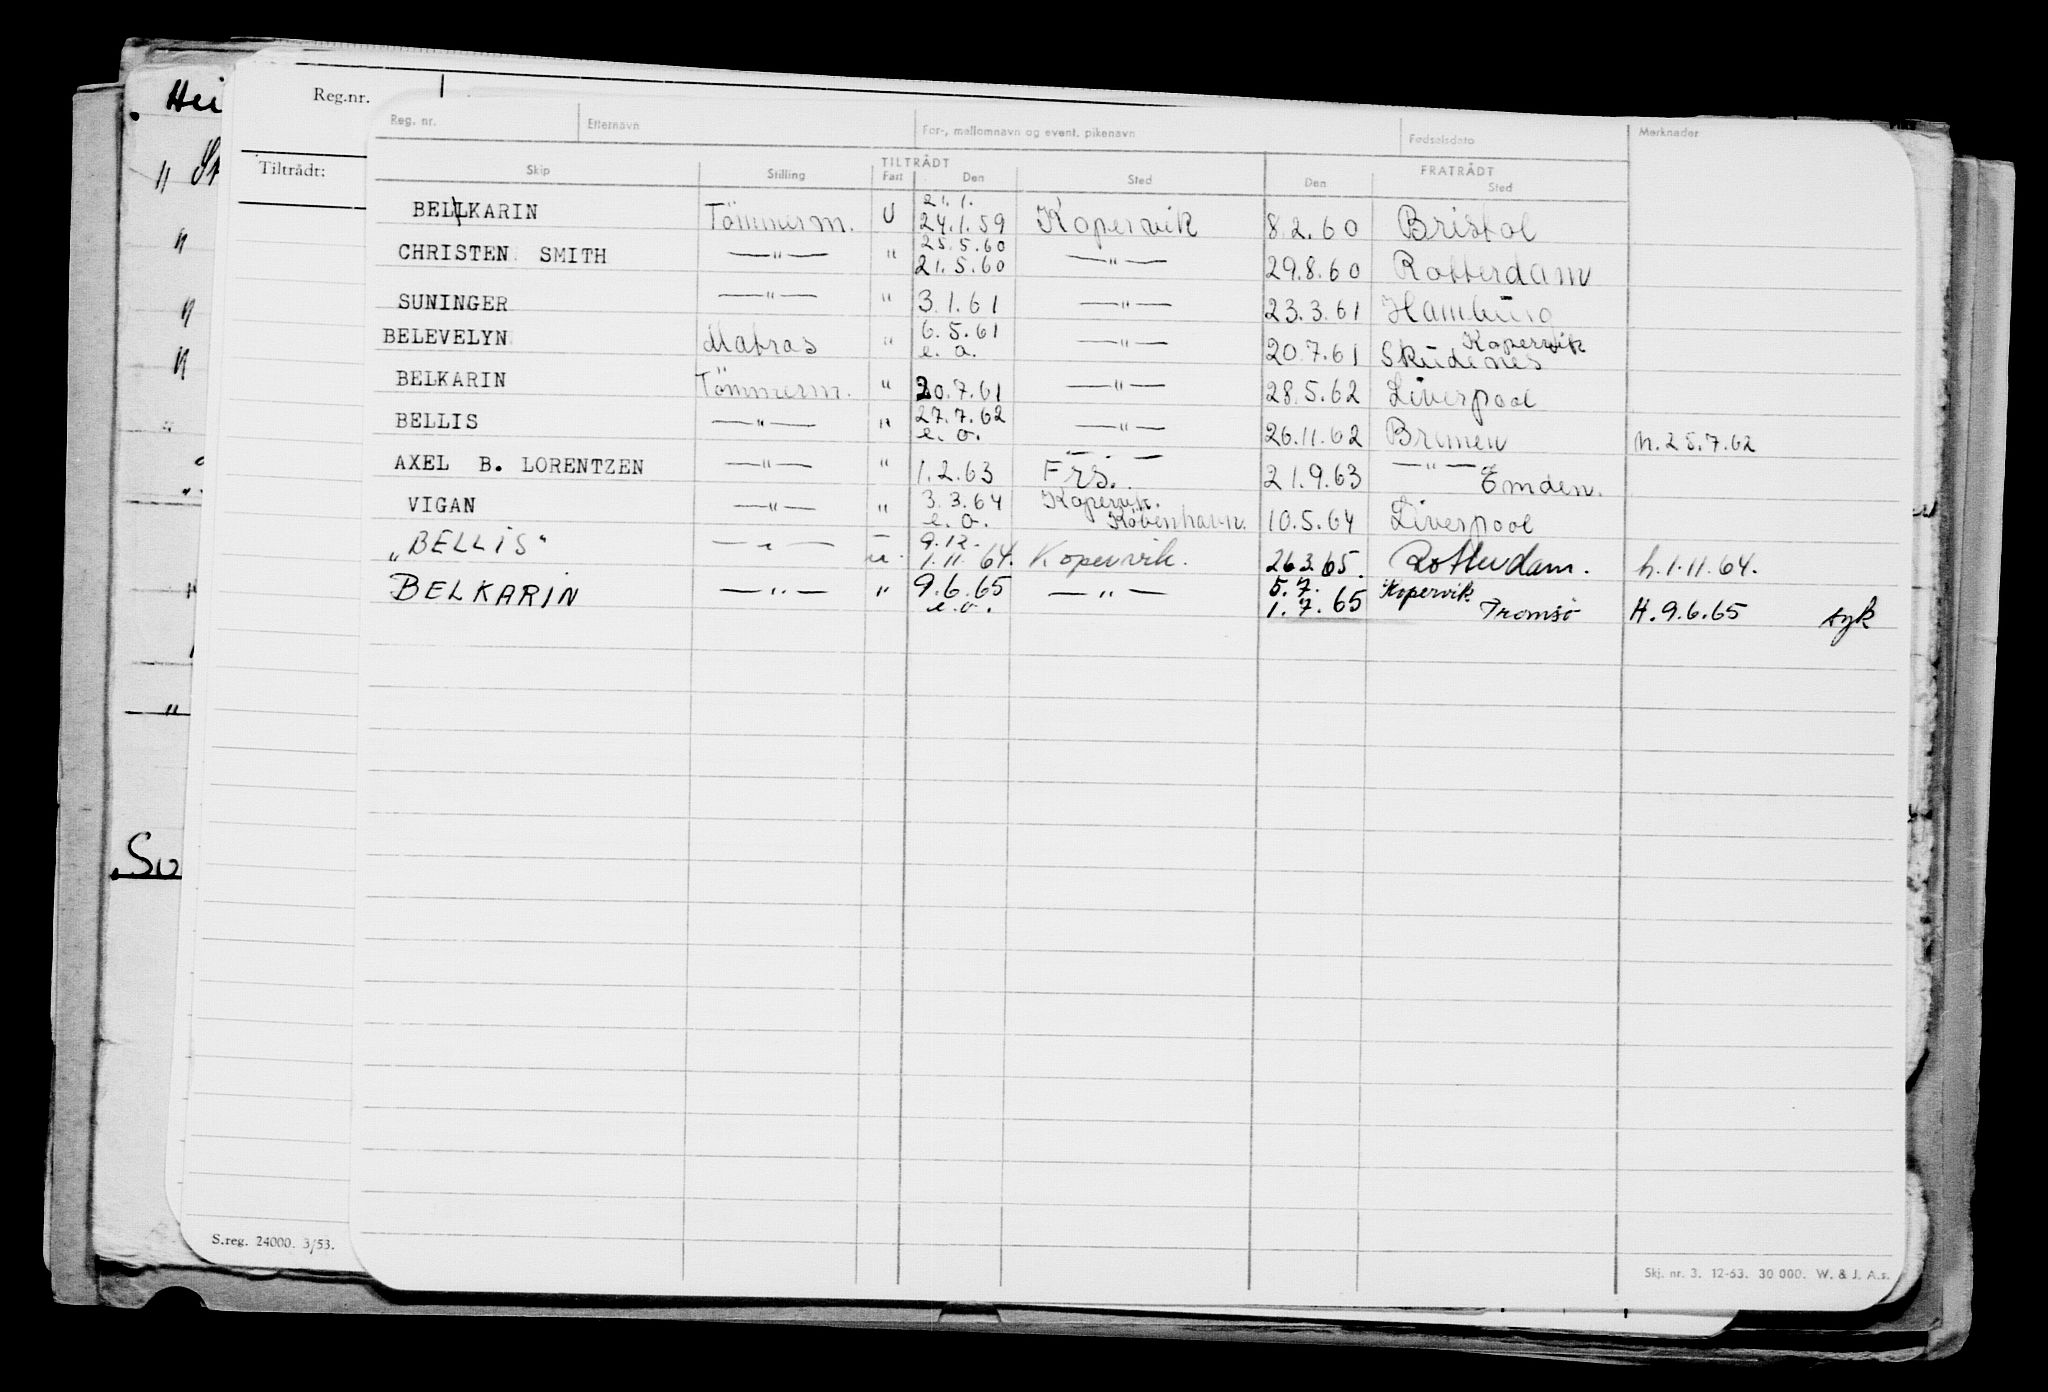 Hei
Reg.nr.
Tiltrådt:
Reg. nr. Etternavn For-, mellomnavn og event. pikenavn Fødselsdato Merknader
TILTRÅDT FRATRÅDT
Skip Stilling Fart Den Sted Den Sted
21.1.
BELLKARIN Tömmerm. U 24.1.59 Kopervik 8.2.60 Bristol
25.5.60
CHRISTEN SMITH —"— " 21.5.60 —"— 29.8.60 Rotterdam
SUNINGER —"— " 3.1.61 —"— 23.3.61 Hamburg
6.5.61 Kopervik
BELEVELYN Matros " e. o. —"— 20.7.61 Skudenes
BELKARIN Tömmerm. " 20.7.61 —"— 28.5.62 Liverpool
27.7.62
BELLIS —"— " e. o. —"— 26.11.62 Bremen h. 25.7.62
AXEL B. LORENTZEN —"— " 1.2.63 Frs. 21.9.63 —"— Emden.
3.3.64 Kopervik.
VIGAN —"— " e. o. Köbenhavn. 10.5.64 Liverpool
9.12.
„BELLIS" —"— u. 1.11.64. Kopervik. 26.3.65. Rotterdam. h.1.11.64.
9.6.65 5.7. Kopervik
BELKARIN —"— " e.o. —"— 1.7.65 Tromsö H. 9.6.65 syk
So
S.reg. 24000. 3/53.
Skj. nr. 3. 12-63. 30 000. W. & J. A.s.